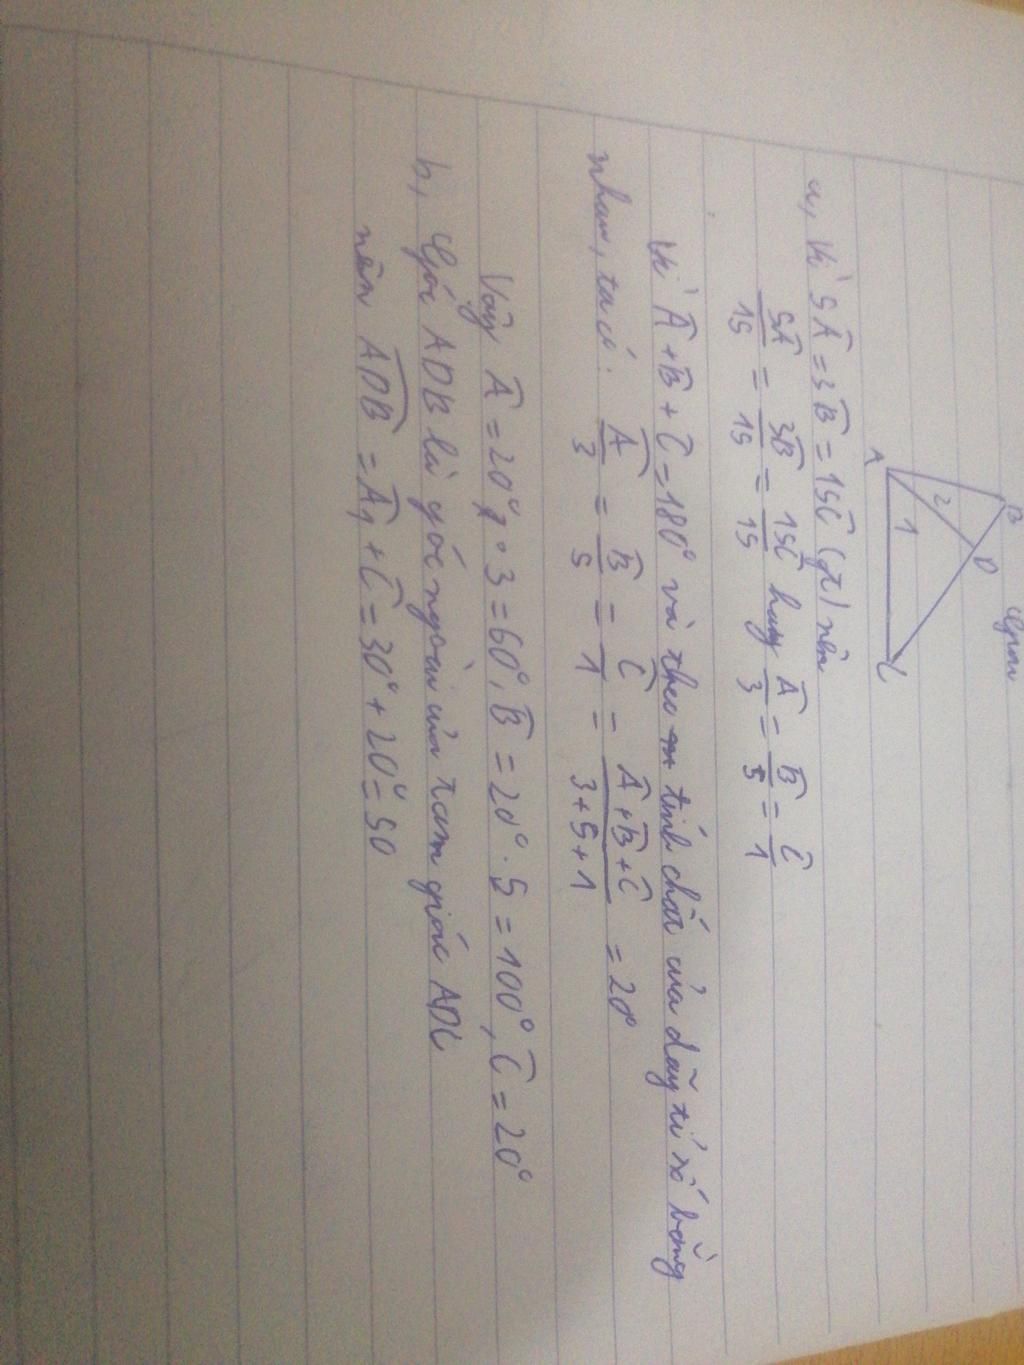 Giải
B
D
2
A 1 C
a, Vì 5Â = 3B̂ = 15Ĉ (gt) nên
5Â/15 = 3B̂/15 = 15Ĉ/15 hay Â/3 = B̂/5 = Ĉ/1
Vì Â + B̂ + Ĉ = 180° và theo tính chất của dãy tỉ số bằng
nhau, ta có: Â/3 = B̂/5 = Ĉ/1 = Â+B̂+Ĉ/3+5+1 = 20°
Vậy Â = 20° . 3 = 60°, B̂ = 20° . 5 = 100°, Ĉ = 20°
b, Góc ADB là góc ngoài của tam giác ADC
nên ADB̂ = Â₁ + Ĉ = 30° + 20° = 50